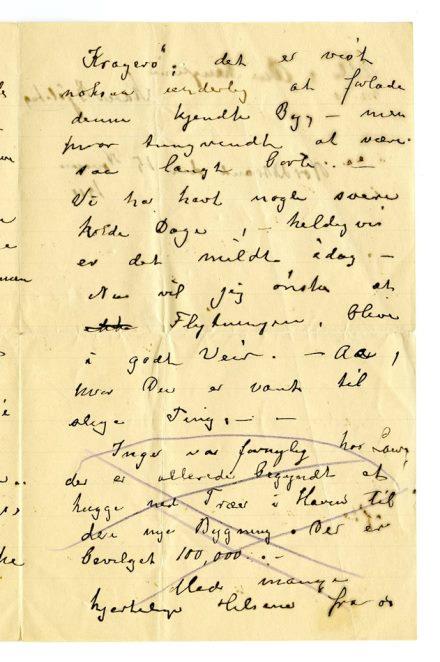 Kragerö", det er vist
noksaa underlig at forlade
denne kjendte By, — men
hvor tungvendt at være
saa langt borte. —
Vi ha havt nogle svære
kolde Dage, — heldigvis
er det mildt idag —
Nu vil jeg önske at
Flytningen, blive
i godt Veir. — Aa,
hvor De er vant til
slige Ting, — —
Inger var fornylig hos
der er allerede begyndt at
hugge ned Trær i Haven til
den nye Bygning. Der er
bevilget 100,000. —
Med mange
hjertelige Hilsener fra os